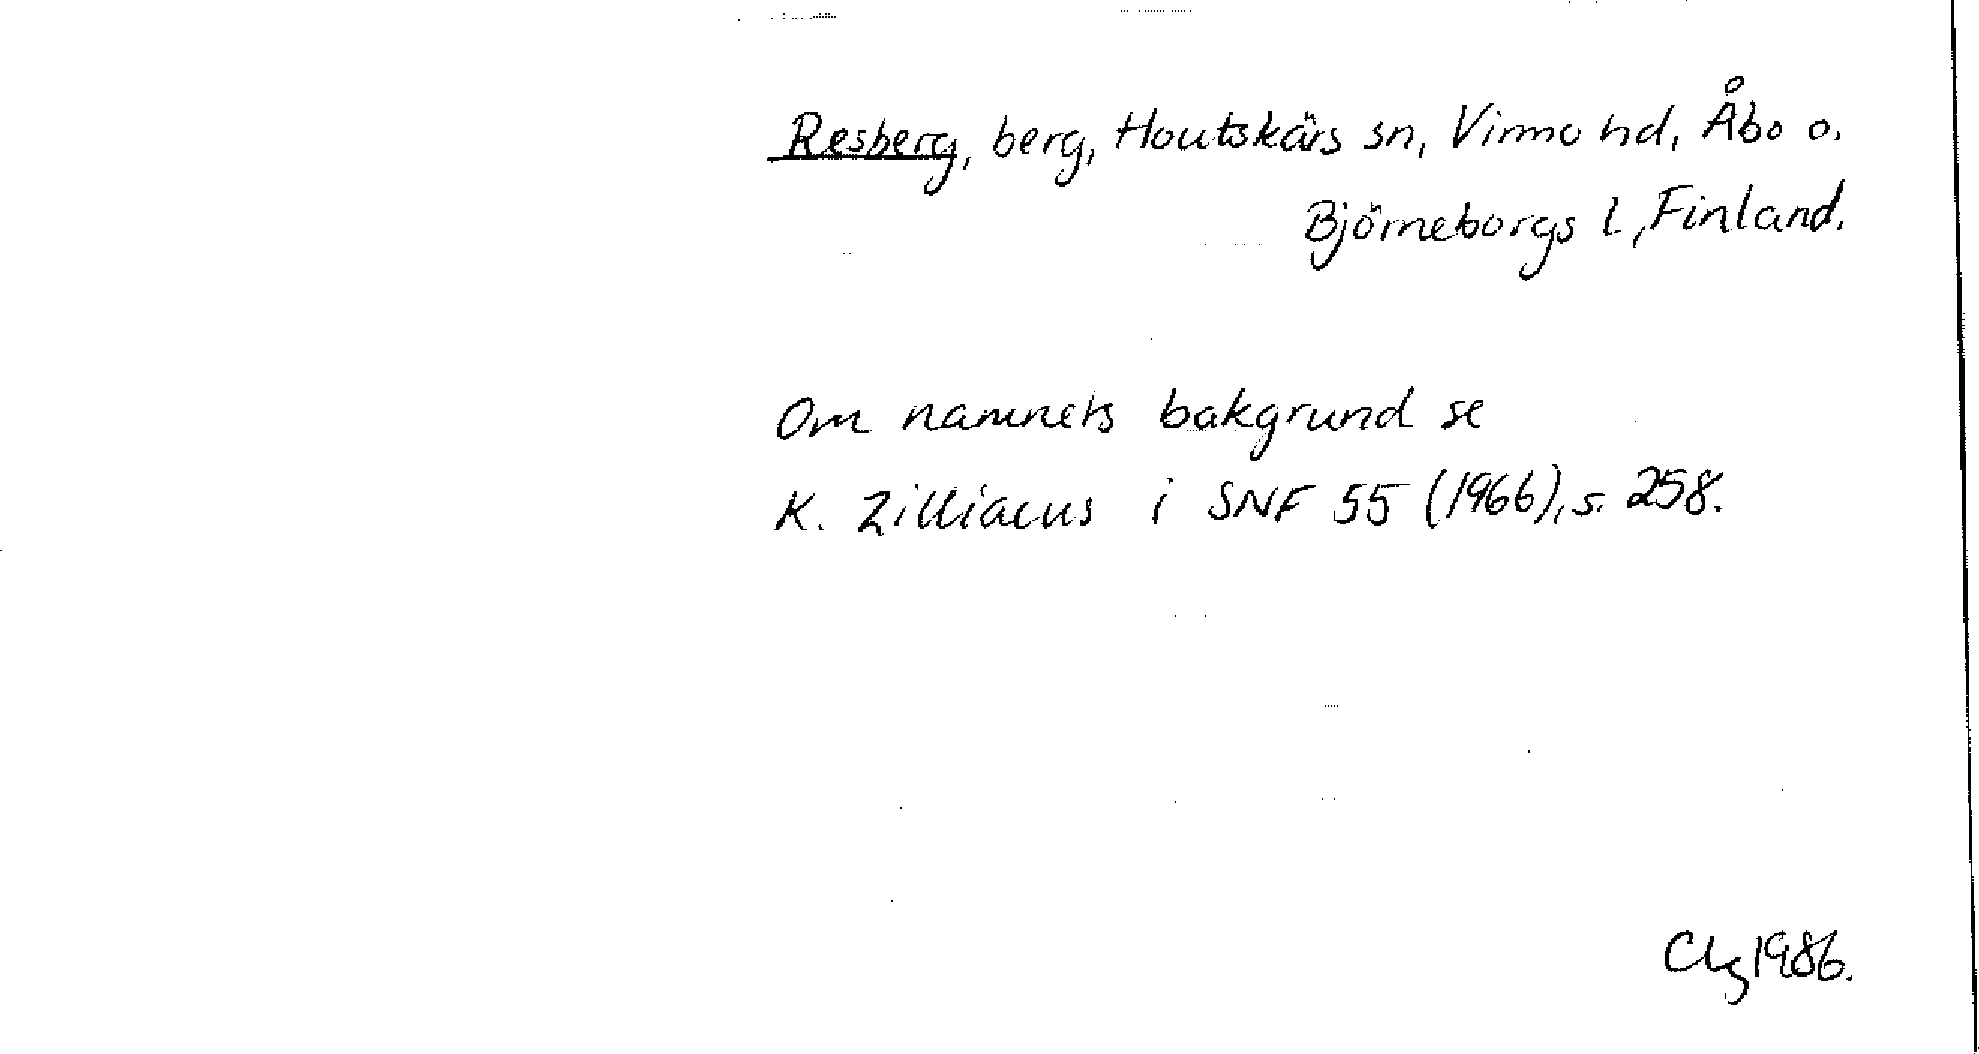 Resberg, berg, Houtskärs sn, Virmo hd, Åbo o.
Björneborgs l, Finland.
Om namnets bakgrund se
K. Zilliacus i SNF 55 (1966), s. 258.
1986.